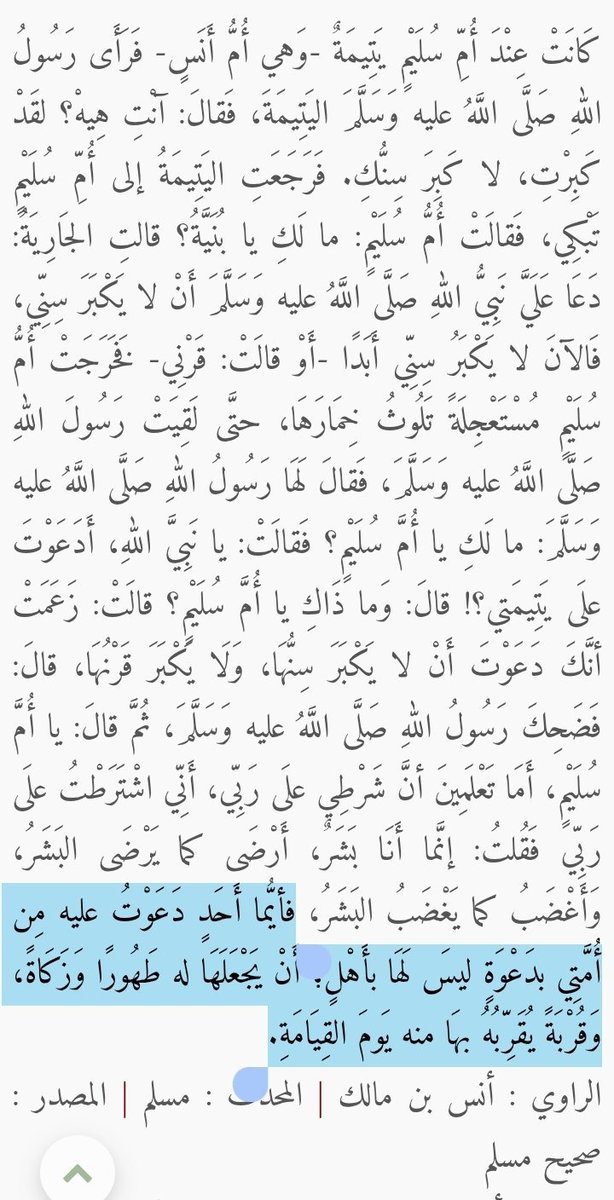 كَانَتْ عِنْدَ أُمِّ سُلَيْمٍ يَتِيمَةٌ -وَهي أُمُّ أَنَسٍ- فَرَأَى رَسولُ
اللهِ صَلَّى اللَّهُ عليه وَسَلَّمَ اليَتِيمَةَ، فَقالَ: آنْتِ هِيهْ؟ لقَدْ
كَبِرْتِ، لا كَبِرَ سِنُّكِ. فَرَجَعَتِ اليَتِيمَةُ إلى أُمِّ سُلَيْمٍ
تَبْكِي، فَقالَتْ أُمُّ سُلَيْمٍ: ما لَكِ يا بُنَيَّةُ؟ قالتِ الجَارِيَةُ:
دَعَا عَلَيَّ نَبِيُّ اللهِ صَلَّى اللَّهُ عليه وَسَلَّمَ أَنْ لا يَكْبَرَ سِنِّي،
فَالآنَ لا يَكْبَرُ سِنِّي أَبَدًا -أَوْ قالَتْ: قَرْنِي- فَخَرَجَتْ أُمُّ
سُلَيْمٍ مُسْتَعْجِلَةً تَلُوثُ خِمَارَهَا، حتَّى لَقِيَتْ رَسُولَ اللهِ
صَلَّى اللَّهُ عليه وَسَلَّمَ، فَقالَ لَهَا رَسُولُ اللهِ صَلَّى اللَّهُ عليه
وَسَلَّمَ: ما لَكِ يا أُمَّ سُلَيْمٍ؟ فَقالَتْ: يا نَبِيَّ اللهِ، أَدَعَوْتَ
علَى يَتِيمَتِي؟! قالَ: وَما ذَاكِ يا أُمَّ سُلَيْمٍ؟ قالَتْ: زَعَمَتْ
أنَّكَ دَعَوْتَ أَنْ لا يَكْبَرَ سِنُّهَا، وَلَا يَكْبَرَ قَرْنُهَا، قالَ:
فَضَحِكَ رَسُولُ اللهِ صَلَّى اللَّهُ عليه وَسَلَّمَ، ثُمَّ قالَ: يا أُمَّ
سُلَيْمٍ، أَمَا تَعْلَمِينَ أنَّ شَرْطِي علَى رَبِّي، أَنِّي اشْتَرَطْتُ علَى
رَبِّي فَقُلتُ: إنَّما أَنَا بَشَرٌ، أَرْضَى كما يَرْضَى البَشَرُ،
وَأَغْضَبُ كما يَغْضَبُ البَشَرُ، فأيُّما أَحَدٍ دَعَوْتُ عليه مِن
أُمَّتِي بدَعْوَةٍ ليسَ لَهَا بأَهْلٍ؛ أَنْ يَجْعَلَهَا له طَهُورًا وَزَكَاةً،
وَقُرْبَةً يُقَرِّبُهُ بهَا منه يَومَ القِيَامَةِ.
الراوي : أنس بن مالك | المحدث : مسلم | المصدر :
صحيح مسلم